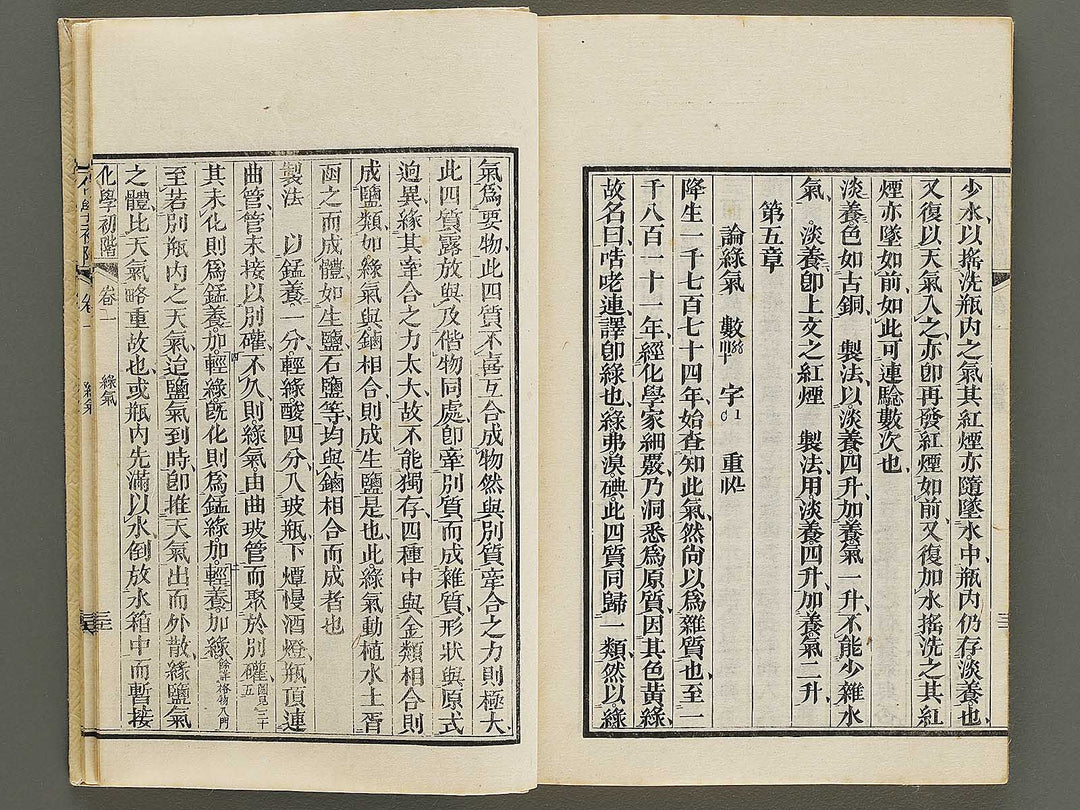 少水以搖洗瓶內之氣其紅煙亦隨墜水中瓶內仍存淡養也
又復以天氣入之亦卽再發紅煙如前又復加水搖洗之其紅
煙亦墜如前如此可連驗數次也
淡養色如古銅 製法以淡養四升加養氣一升不能少雜水
氣 淡養卽上文之紅煙 製法用淡養四升加養氣二升
第五章
論綠氣 數 字 重
降生一千七百七十四年始查知此氣然尙以爲雜質也至一
千八百一十一年經化學家細嚴乃洞悉爲原質因其色黃綠
故名曰咾連譯卽綠也綠弗溴碘此四質同歸一類然以綠
氣爲要物此四質不喜互合成物然與別質牽合之力則極大
此四質露放與及偕物同處卽牽別質而成雜質形狀與原式
逈異緣其牽合之力太大故不能獨存四種中與金類相合則
成鹽類如綠氣與鏀相合則成生鹽是也此綠氣動植水土胥
函之而成體如生鹽石鹽等均與鏀相合而成者也
製法 以錳養一分輕綠酸四分入玻瓶下燂慢酒燈瓶頂連
曲管管末接以別罐不久則綠氣由曲玻管而聚於別罐圖見三十五
其未化則爲錳養加輕綠旣化則爲錳綠加輕養加綠餘詳格物入門
至若別瓶內之天氣迨鹽氣到時卽推天氣出而外散綠鹽氣
之體比天氣略重故也或瓶內先滿以水倒放水箱中而暫接
化學初階 卷二 綠氣 三三